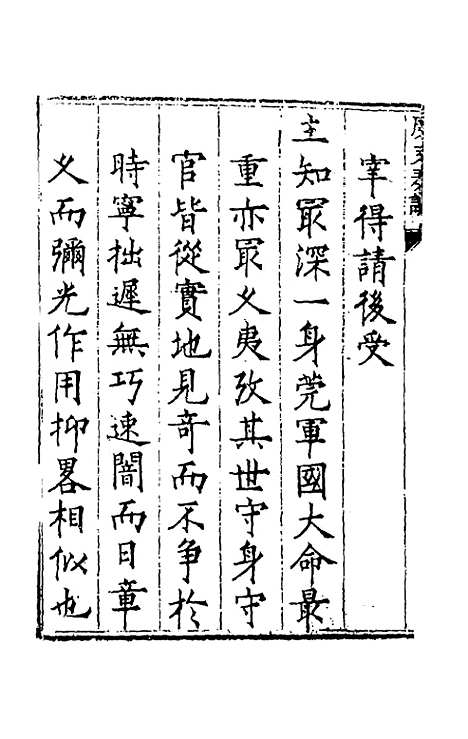 宰得請後受
主知㝡深一身筦軍國大命最
重亦㝡乆夷攷其世守身守
官皆從實地見奇而不争於
時寧拙遲無巧速闇而日章
乆而彌光作用抑畧相似也